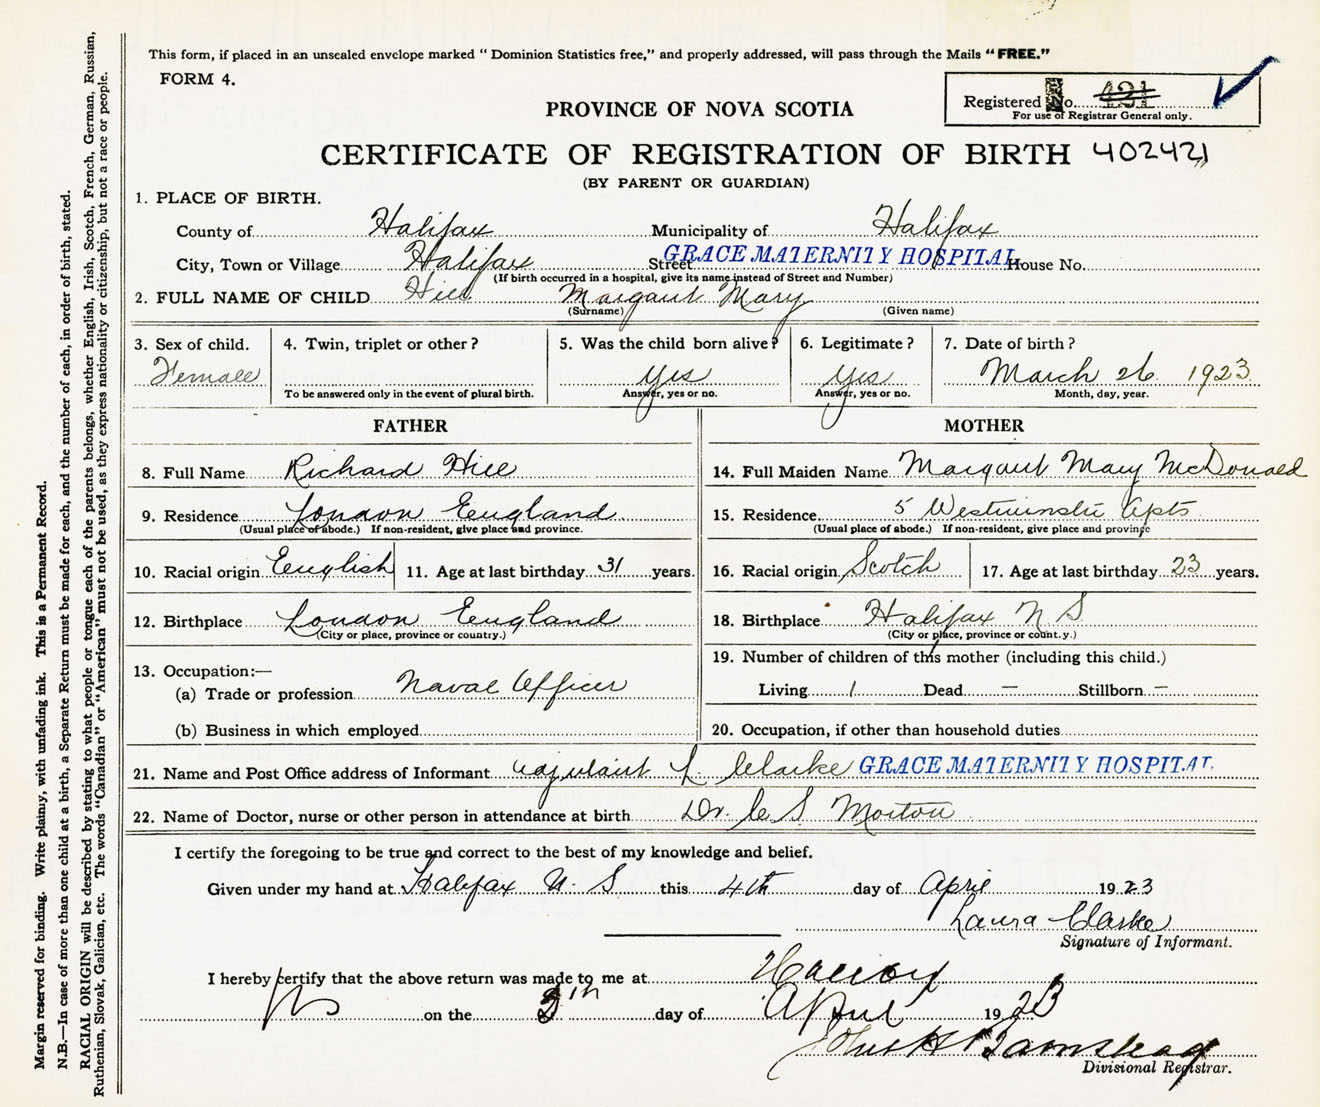 This form, if placed in an unscaled envelope marked " Dominion Statistics free," and properly addressed, will pass through the Mails "FREE."
FORM 4.
Registered No. 431
For use of Registrar General only.
PROVINCE OF NOVA SCOTIA
CERTIFICATE OF REGISTRATION OF BIRTH 402421
(BY PARENT OR GUARDIAN)
1. PLACE OF BIRTH.
County of Halifax Municipality of Halifax
City, Town or Village Halifax Street GRACE MATERNITY HOSPITAL House No.
(If birth occurred in a hospital, give its name instead of Street and Number)
2. FULL NAME OF CHILD Hill Margaret Mary
(Surname) (Given name)
3. Sex of child. 4. Twin, triplet or other? 5. Was the child born alive? 6. Legitimate? 7. Date of birth?
Female yes yes March 26 1923
To be answered only in the event of plural birth. Answer, yes or no. Answer, yes or no. Month, day, year.
FATHER MOTHER
8. Full Name Richard Hill 14. Full Maiden Name Margaret Mary McDonald
9. Residence London England 15. Residence 5 Westminster Apts
(Usual place of abode.) If non-resident, give place and province. (Usual place of abode.) If non-resident, give place and province
10. Racial origin English 11. Age at last birthday 31 years. 16. Racial origin Scotch 17. Age at last birthday 23 years.
12. Birthplace London England 18. Birthplace Halifax N S
(City or place, province or country.) (City or place, province or count.y.)
13. Occupation:— 19. Number of children of this mother (including this child.)
(a) Trade or profession Naval Officer Living 1 Dead — Stillborn —
(b) Business in which employed 20. Occupation, if other than household duties
21. Name and Post Office address of Informant Adjutant L Clarke GRACE MATERNITY HOSPITAL
22. Name of Doctor, nurse or other person in attendance at birth Dr. C S Morton
I certify the foregoing to be true and correct to the best of my knowledge and belief.
Given under my hand at Halifax N. S this 4th day of April 1923
Laura Clarke
Signature of Informant.
I hereby certify that the above return was made to me at Halifax
NS on the 5th day of April 1923
John H Barnstead
Divisional Registrar.
Margin reserved for binding. Write plainly, with unfading ink. This is a Permanent Record.
N.B.—In case of more than one child at a birth, a Separate Return must be made for each, and the number of each, in order of birth, stated.
RACIAL ORIGIN will be described by stating to what people or tongue each of the parents belongs, whether English, Irish, Scotch, French, German, Russian,
Ruthenian, Slovak, Galician, etc. The words "Canadian" or "American" must not be used, as they express nationality or citizenship, but not a race or people.